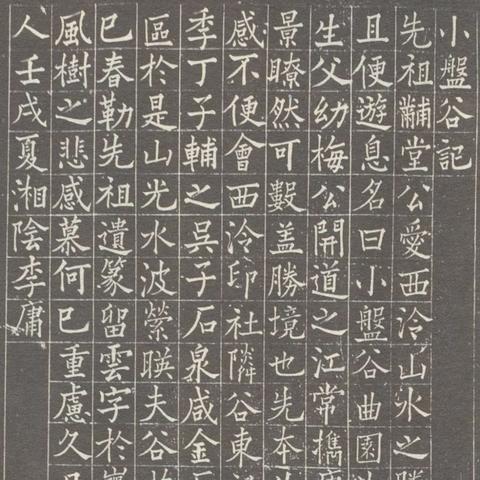 小盤谷記
先祖黼堂公愛西泠山水之勝
且便遊息名曰小盤谷曲園
生父幼梅公開道之江常擕
景瞭然可數盖勝境也先本生
感不便會西泠印社隣谷東
季丁子輔之吳子石泉咸金石
區於是山光水波縈暎夫谷
巳春勒先祖遺篆留雲字於巖
風樹之悲感慕何已重慮久
人壬戌夏湘陰李庸